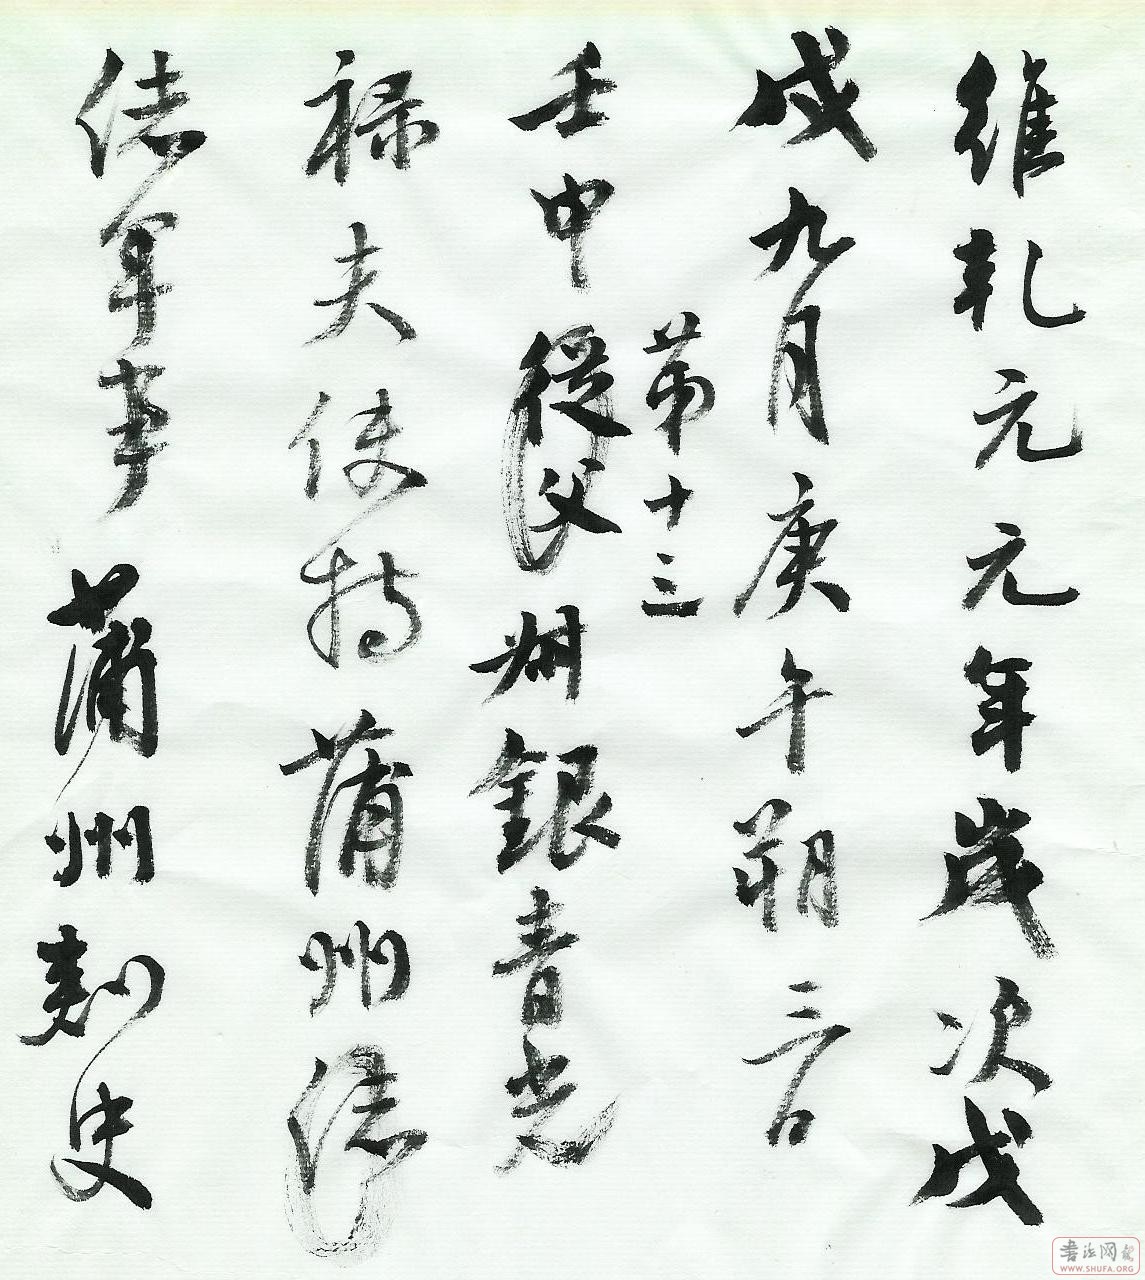 維乾元元年歲次戊
戌九月庚午朔三日
壬申從父叔銀青光
第十三
禄夫使持蒲州諸
諸軍事蒲州刺史
書法网
WWW.SHUFA.ORG